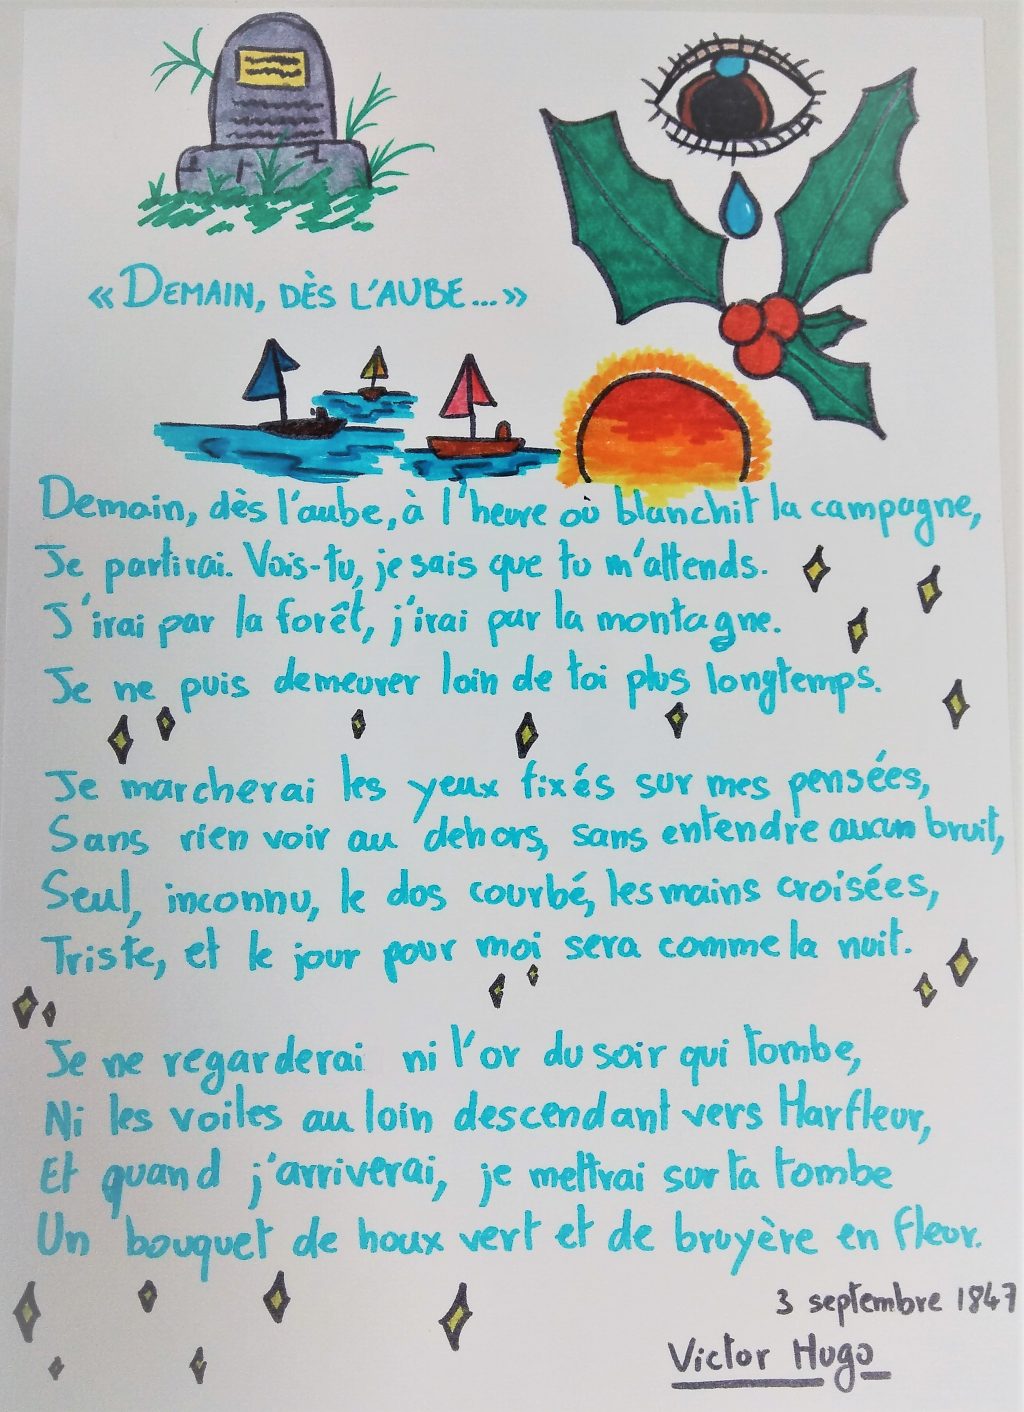 « DEMAIN, DÈS L'AUBE... »
Demain, dès l'aube, à l'heure où blanchit la campagne,
Je partirai. Vois-tu, je sais que tu m'attends.
J'irai par la forêt, j'irai par la montagne.
Je ne puis demeurer loin de toi plus longtemps.
Je marcherai les yeux fixés sur mes pensées,
Sans rien voir au dehors, sans entendre aucun bruit,
Seul, inconnu, le dos courbé, les mains croisées,
Triste, et le jour pour moi sera comme la nuit.
Je ne regarderai ni l'or du soir qui tombe,
Ni les voiles au loin descendant vers Harfleur,
Et quand j'arriverai, je mettrai sur ta tombe
Un bouquet de houx vert et de bruyère en fleur.
3 septembre 1847
Victor Hugo